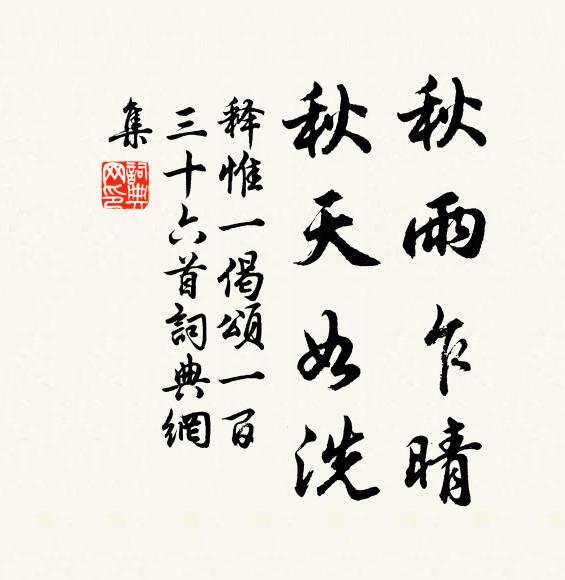 秋雨乍晴
秋天如洗
释惟一偈頌一百
三十六首詞典網
集
詞典網印